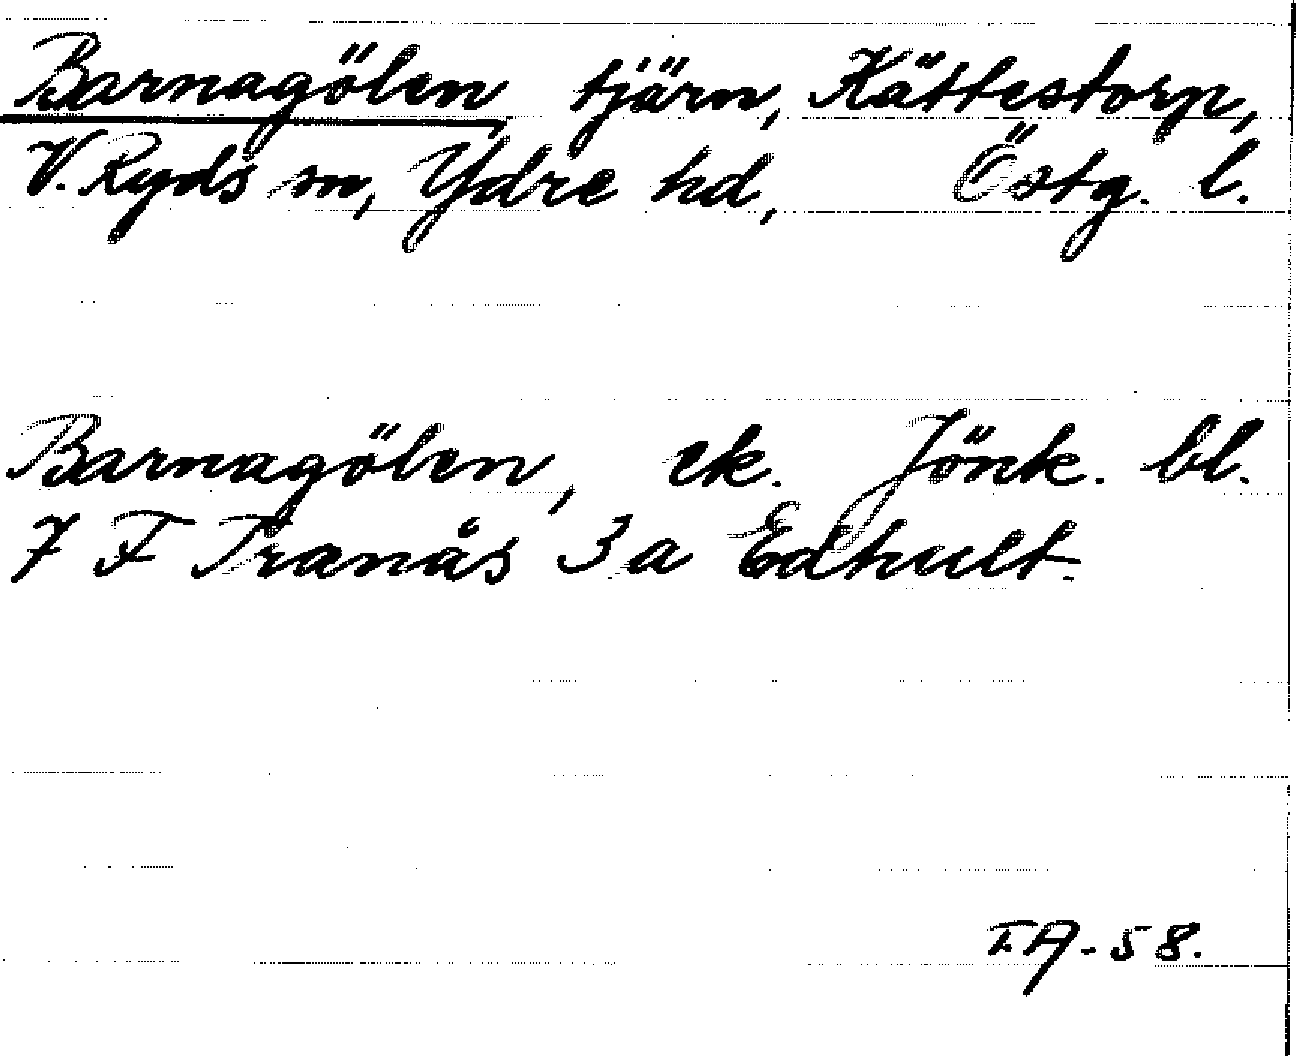 Barnagölen tjärn, Kättestorp,
V. Ryds sn, Ydre hd, Östg. l.
Barnagölen, ek. Jönk. bl.
7 F Tranås 3 a Edhult.
FA-58.